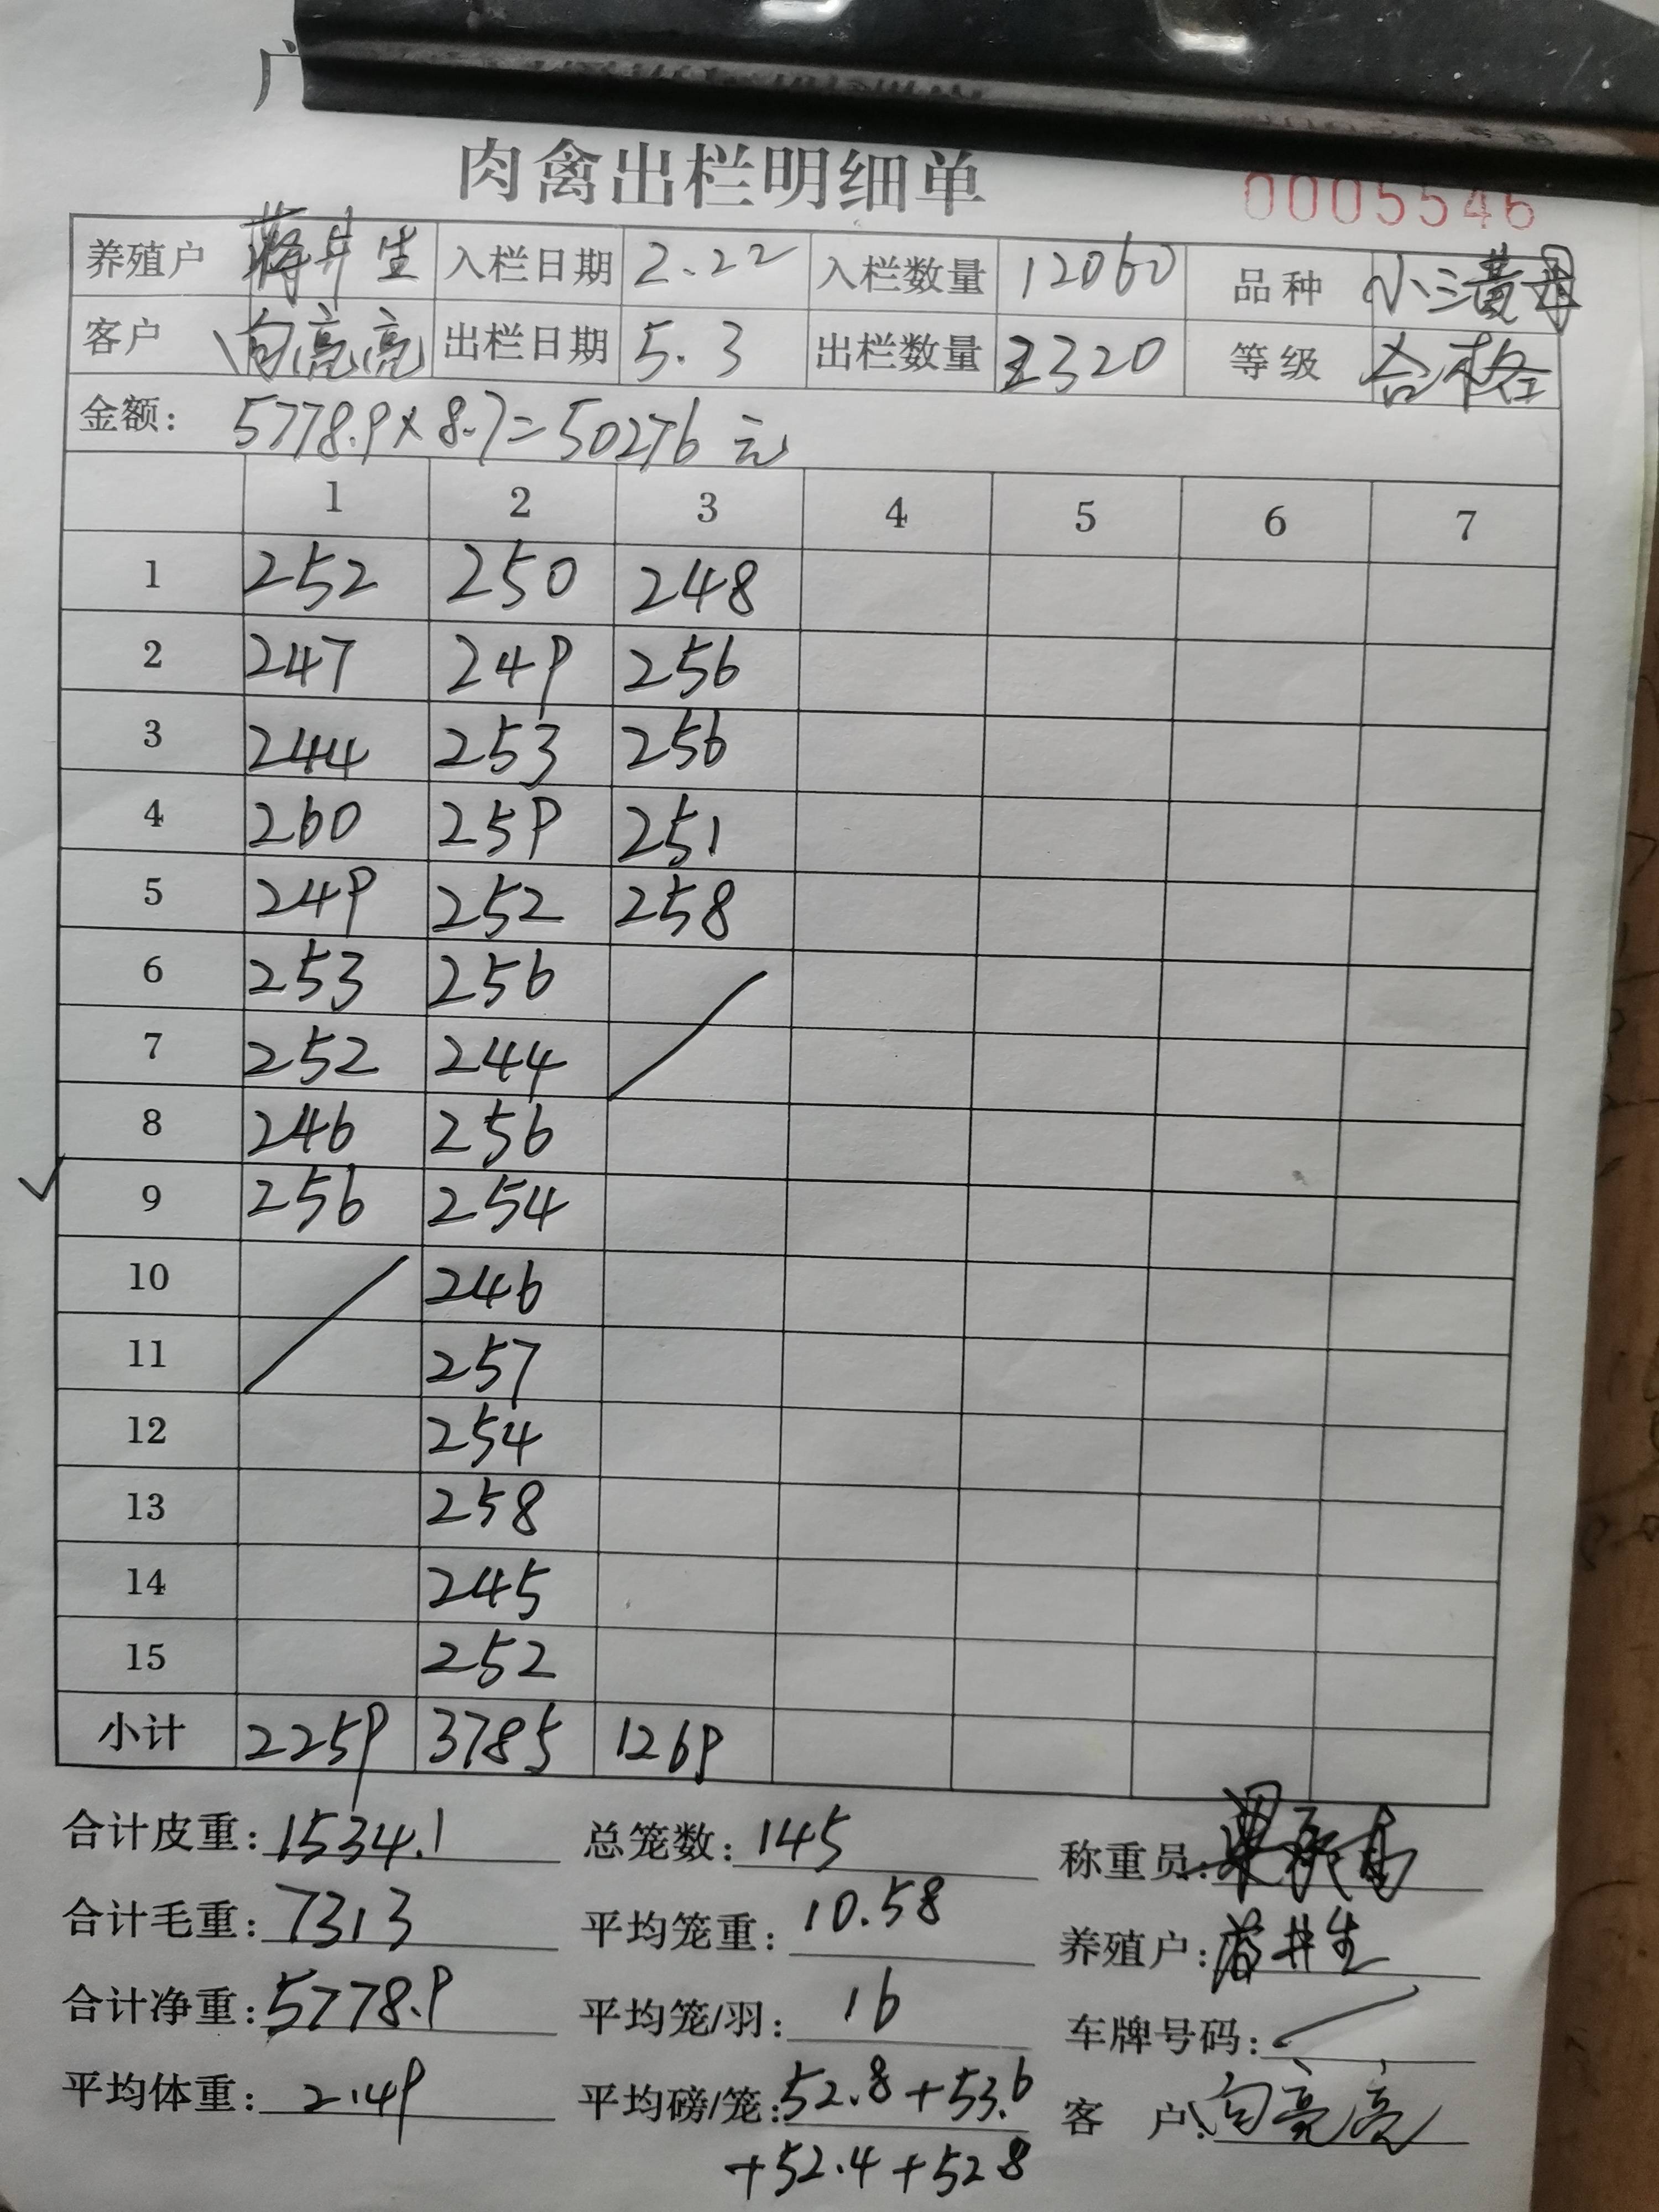 广
肉禽出栏明细单
0005546
养殖户 蒋井生 入栏日期 2.22 入栏数量 12060 品种 小三黄母
客户 向亮亮 出栏日期 5.3 出栏数量 2320 等级 合格
金额: 5778.9×8.7=50276元
1 2 3 4 5 6 7
1 252 250 248
2 247 249 256
3 244 253 256
4 260 259 251
5 249 252 258
6 253 256
7 252 244
8 246 256
9 256 254
10 246
11 257
12 254
13 258
14 245
15 252
小计 2259 3785 1269
合计皮重: 1534.1 总笼数: 145 称重员:
合计毛重: 7313 平均笼重: 10.58 养殖户: 蒋井生
合计净重: 5778.9 平均笼/羽: 16 车牌号码:
平均体重: 2.49 平均磅/笼: 52.8+53.6 客户: 向亮亮
+52.4+52.8